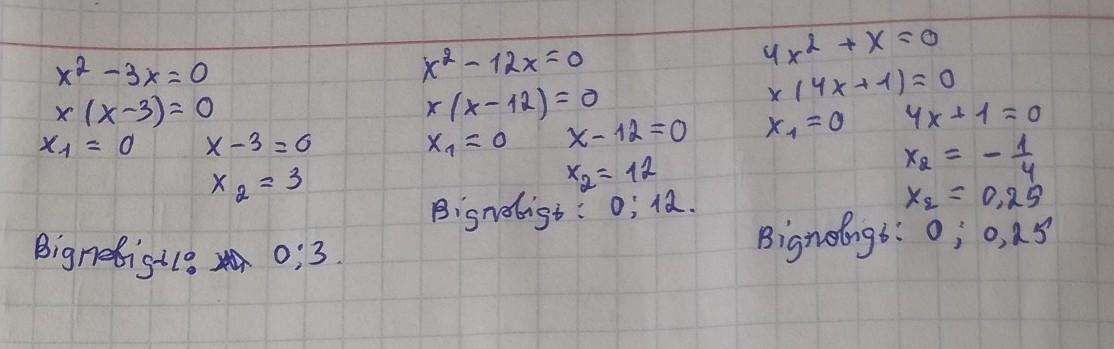 x² - 3x = 0
x(x-3) = 0
x₁ = 0 x-3 = 0
x₂ = 3
Відповідь: 0; 3.
x² - 12x = 0
x(x-12) = 0
x₁ = 0 x-12 = 0
x₂ = 12
Відповідь: 0; 12.
4x² + x = 0
x(4x+1) = 0
x₁ = 0 4x+1 = 0
x₂ = -1/4
x₂ = 0,25
Відповідь: 0; 0,25